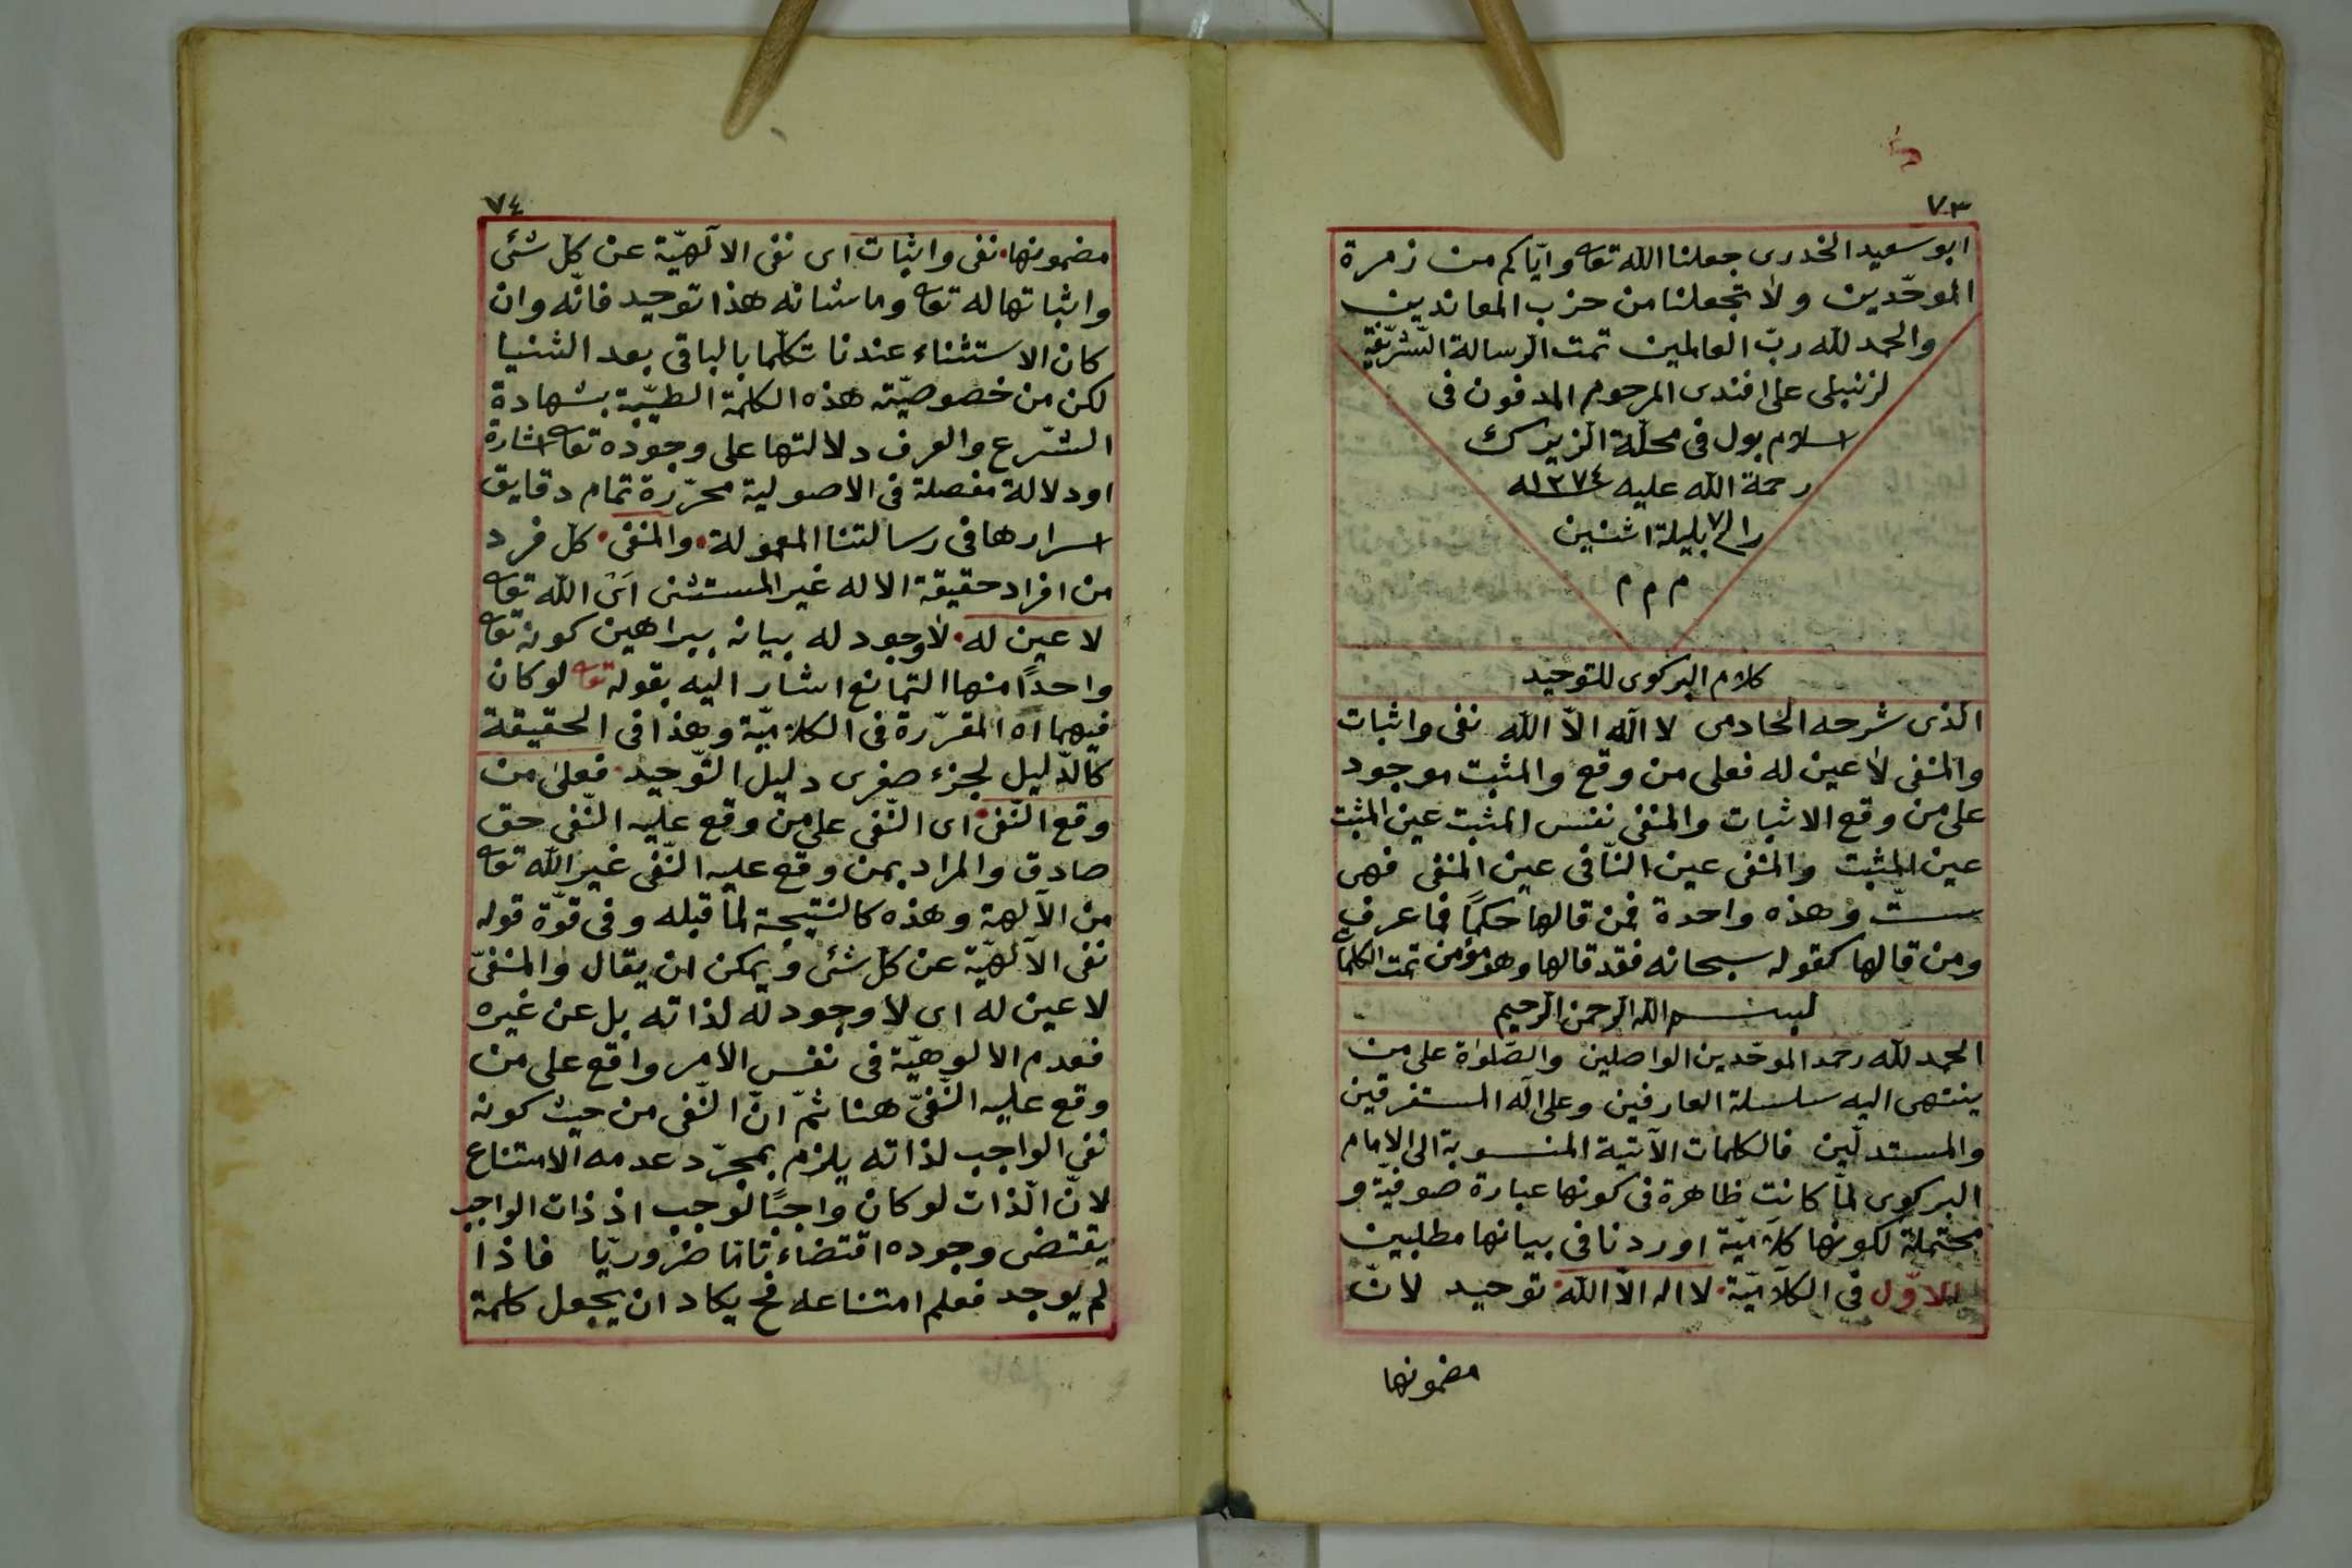 ٧٣
ابو سعيد الخدرى جعلنا الله تعا وايّاكم من زمرة
الموحّدين ولا تجعلنا من حزب المعاندين
والحمد لله ربّ العالمين تمت الرّسالة الشّريفة
لزنبيلى على افندى المرحوم المدفون فى
اسلام بول فى محلّة الزيرك
رحمة الله عليه ١٢٧٤
بليلة اثنين
م م م
كلام البركوى للتوحيد
الّذى شرحه الخادمى لا اله الّا الله نفى واثبات
والمنفى لا عين له فعلى من وقع والمثبت موجود
على من وقع الاثبات والمنفى نفس المثبت عين المثبت
عين المثبت والمنفى عين النّافى عين المنفى فهى
ستّ وهذه واحدة فمن قالها حكمًا فما عرف
ومن قالها كقوله سبحانه فقد قالها وهو مؤمن تمت الكلمات
بسم الله الرحمن الرحيم
الحمد لله حمد الموحّدين الواصلين والصّلوٰة على من
ينتهى اليه سلسلة العارفين وعلى آله المستغرقين
والمستدلّين فالكلمات الآتية المنسوبة الى الامام
البركوى لمّا كانت ظاهرة فى كونها عبارة صوفيّة و
محتملة لكونها كلاميّة اوردنا فى بيانها مطلبين
الاوّل فى الكلاميّة لا اله الّا الله توحيد لانّ
مضمونها
٧٤
مضمونها نفى واثبات اى نفى الالٰهيّة عن كلّ شئى
واثباتها له تعا وما شانه هذا توحيد فانّه وان
كان الاستثناء عندنا تكلّما بالباقى بعد الثنيا
لكن من خصوصيّته هذه الكلمة الطيّبة بشهادة
الشّرع والعرف دلالتها على وجوده تعا اشارة
او دلالة مفصلة فى الاصولية محرّرة تمام دقايق
اسرارها فى رسالتنا المعمولة والمنفى كل فرد
من افراد حقيقة الاله غير المستثنى اى الله تعا
لا عين له لا وجود له بيانه ببراهين كونه تعا
واحدًا منها التمانع اشار اليه بقوله تعا لو كان
فيهما اه المقرّرة فى الكلاميّة وهذا فى الحقيقة
كالدّليل لجزء صغرى دليل التّوحيد فعلى من
وقع النّفى اى النّفى على من وقع عليه النّفى حق
صادق والمراد بمن وقع عليه النّفى غير الله تعا
من الآلهة وهذه كالنتيجة لما قبله وفى قوّة قوله
نفى الالٰهيّة عن كلّ شئى ويمكن ان يقال والمنفىّ
لا عين له اى لا وجود له لذاته بل عن غيره
فعدم الالوهيّة فى نفس الامر واقع على من
وقع عليه النّفىّ هنا ثمّ انّ النّفى من حيث كونه
نفى الواجب لذاته يلزم بمجرّد عدمه الامتناع
لانّ الذّات لو كان واجبًا لوجب اذ ذات الواجب
يقتضى وجوده اقتضاء تامّا ضروريّا فاذا
لم يوجد فعلم امتناعه فح يكاد ان يجعل كلمة